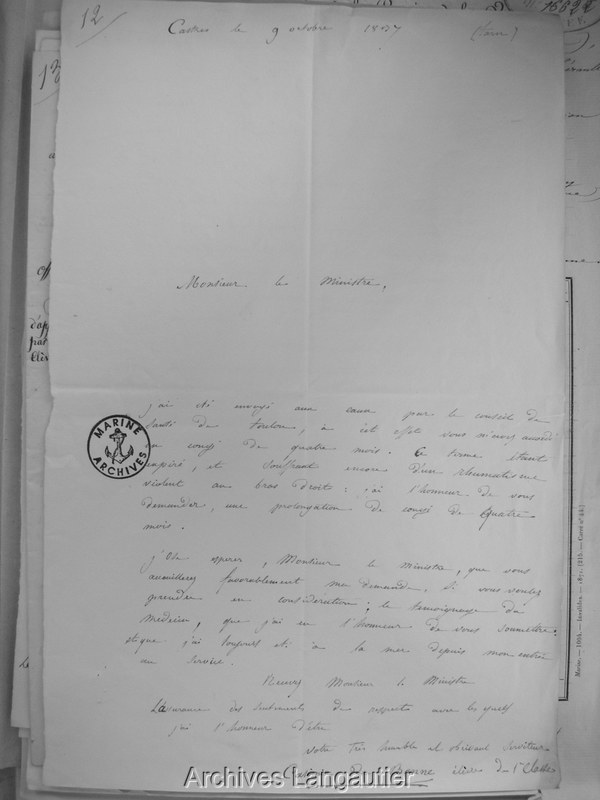 12
Castres le 9 octobre 1837 (Tarn)
Monsieur le Ministre,
MARINE
ARCHIVES
j'ai été envoyé aux eaux par le conseil de
santé de toulon, à cet effet vous m'avez accordé
un congé de quatre mois. Ce terme étant
expiré, et souffrant encore d'un rhumatisme
violent au bras droit: j'ai l'honneur de vous
demander, une prolongation de congé de quatre
mois.
j'Ose esperer, Monsieur le ministre, que vous
accuillerez favorablement ma demande, si vous voulez
prendre en considération; le temoignage du
médecin, que j'ai eu l'honneur de vous soumettre:
et que j'ai toujours été à la mer depuis mon entrée
au service.
Recevez Monsieur le Ministre
L'assurance des sentiments de respects avec les quels
j'ai l'honneur d'être
votre très humble et obéissant serviteur
élève de 1ère Classe
Archives Langautier